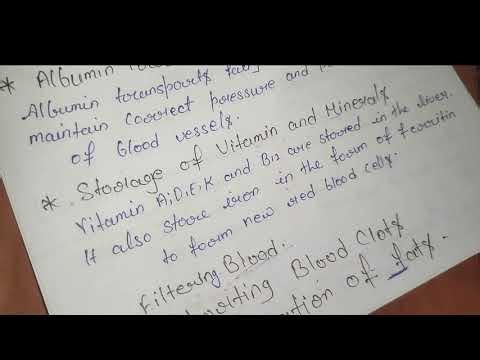 * Albumin
Albumin transports
maintain correct pressure and
of blood vessels.
* Storage of Vitamin and Minerals
Vitamin A,D,E,K and B12 are stored in the liver.
It also store iron in the form of ferritin
to form new red blood cells.
Filtering Blood:.
Blood Clots
of fats.